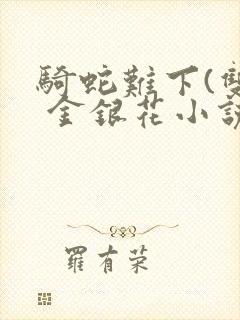 騎蛇難下(雙
金銀花小說
羅有荣